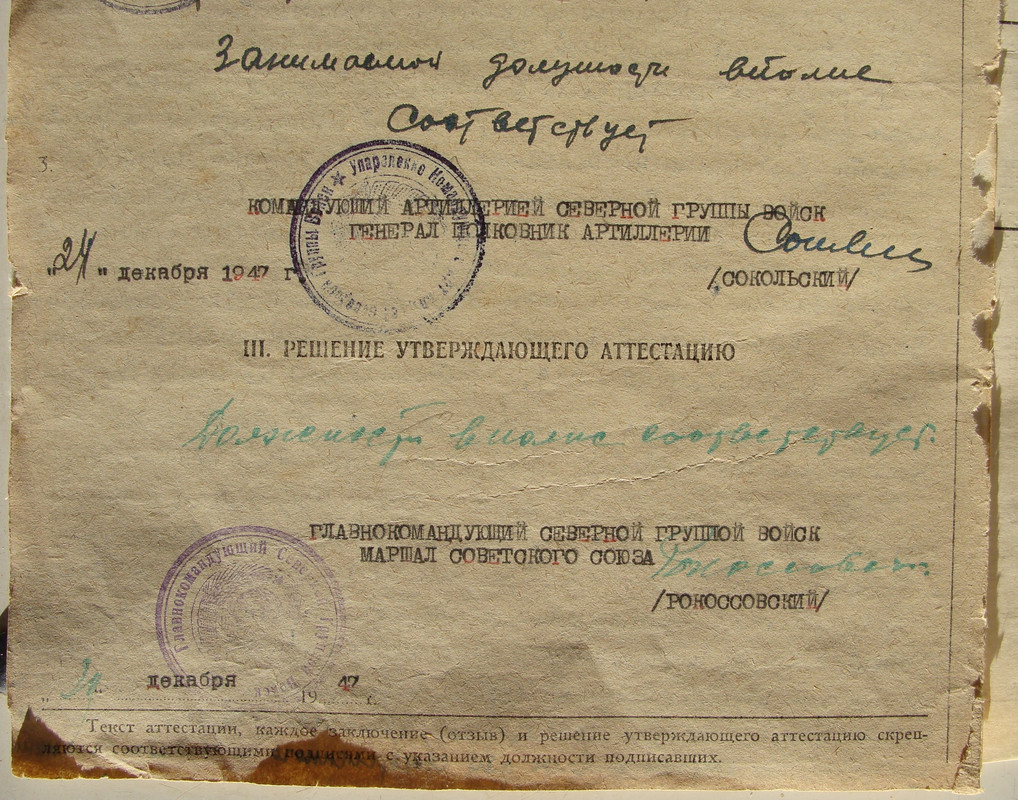 Занимаемой должности вполне
соответствует
3.
КОМАНДУЮЩИЙ АРТИЛЛЕРИЕЙ СЕВЕРНОЙ ГРУППЫ ВОЙСК
ГЕНЕРАЛ ПОЛКОВНИК АРТИЛЛЕРИИ
"24" декабря 1947 г
/СОКОЛЬСКИЙ/
Управление Командующего
III. РЕШЕНИЕ УТВЕРЖДАЮЩЕГО АТТЕСТАЦИЮ
Должности вполне соответствует.
ГЛАВНОКОМАНДУЮЩИЙ СЕВЕРНОЙ ГРУППОЙ ВОЙСК
МАРШАЛ СОВЕТСКОГО СОЮЗА Рокоссовский
/РОКОССОВСКИЙ/
Главнокомандующий Северной Группой Войск
декабря 1947 г.
Текст аттестации, каждое заключение (отзыв) и решение утверждающего аттестацию скреп-
ляются соответствующими подписями с указанием должности подписавших.